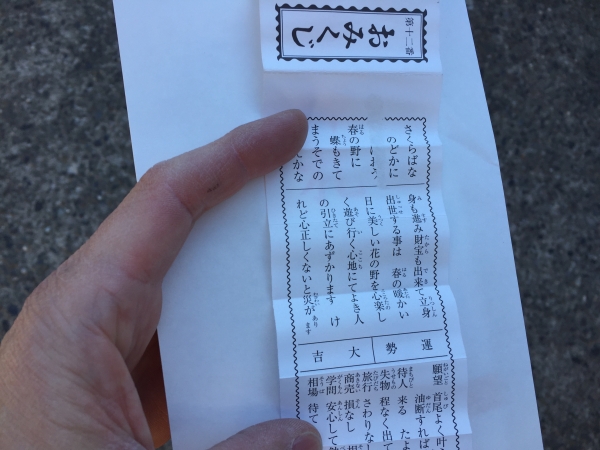 第十二番
おみくじ
さくらばな
のどかに
春の野に
蝶もきて
まうそでの
かな
身も進み財宝も出来て立身
出世する事は 春の暖かい
日に美しい花の野を心楽し
く遊び行く心地にてよき人
の引立にあずかります け
れど心正しくないと災が あります
運勢 大吉
願望 首尾よく叶
油断すれば
待人 来る たよ
失物 程なく出て
旅行 さわりなし
商売 損なし
学問 安心して
相場 待て